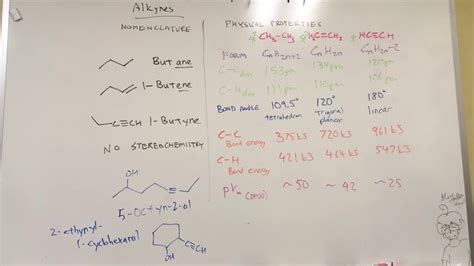 Alkynes
NOMENCLATURE
Butane
1-Butene
C≡CH 1-Butyne
NO STEREOCHEMISTRY
OH
5-octyn-2-ol
2-ethynyl-
1-cyclohexanol
C≡CH
OH
PHYSICAL PROPERTIES
CH₃-CH₃ H₂C=CH₂ HC≡CH
FORM CnH2n+2 CnH2n CnH2n-2
C-C 153pm 134pm 120pm
C-H 111pm 110pm 106pm
BOND ANGLE 109.5° 120° 180°
tetrahedron trigonal planar linear
C-C Bond energy 375kJ 720kJ 961kJ
C-H Bond energy 421kJ 464kJ 547kJ
pKa (DMSO) ~50 ~42 ~25